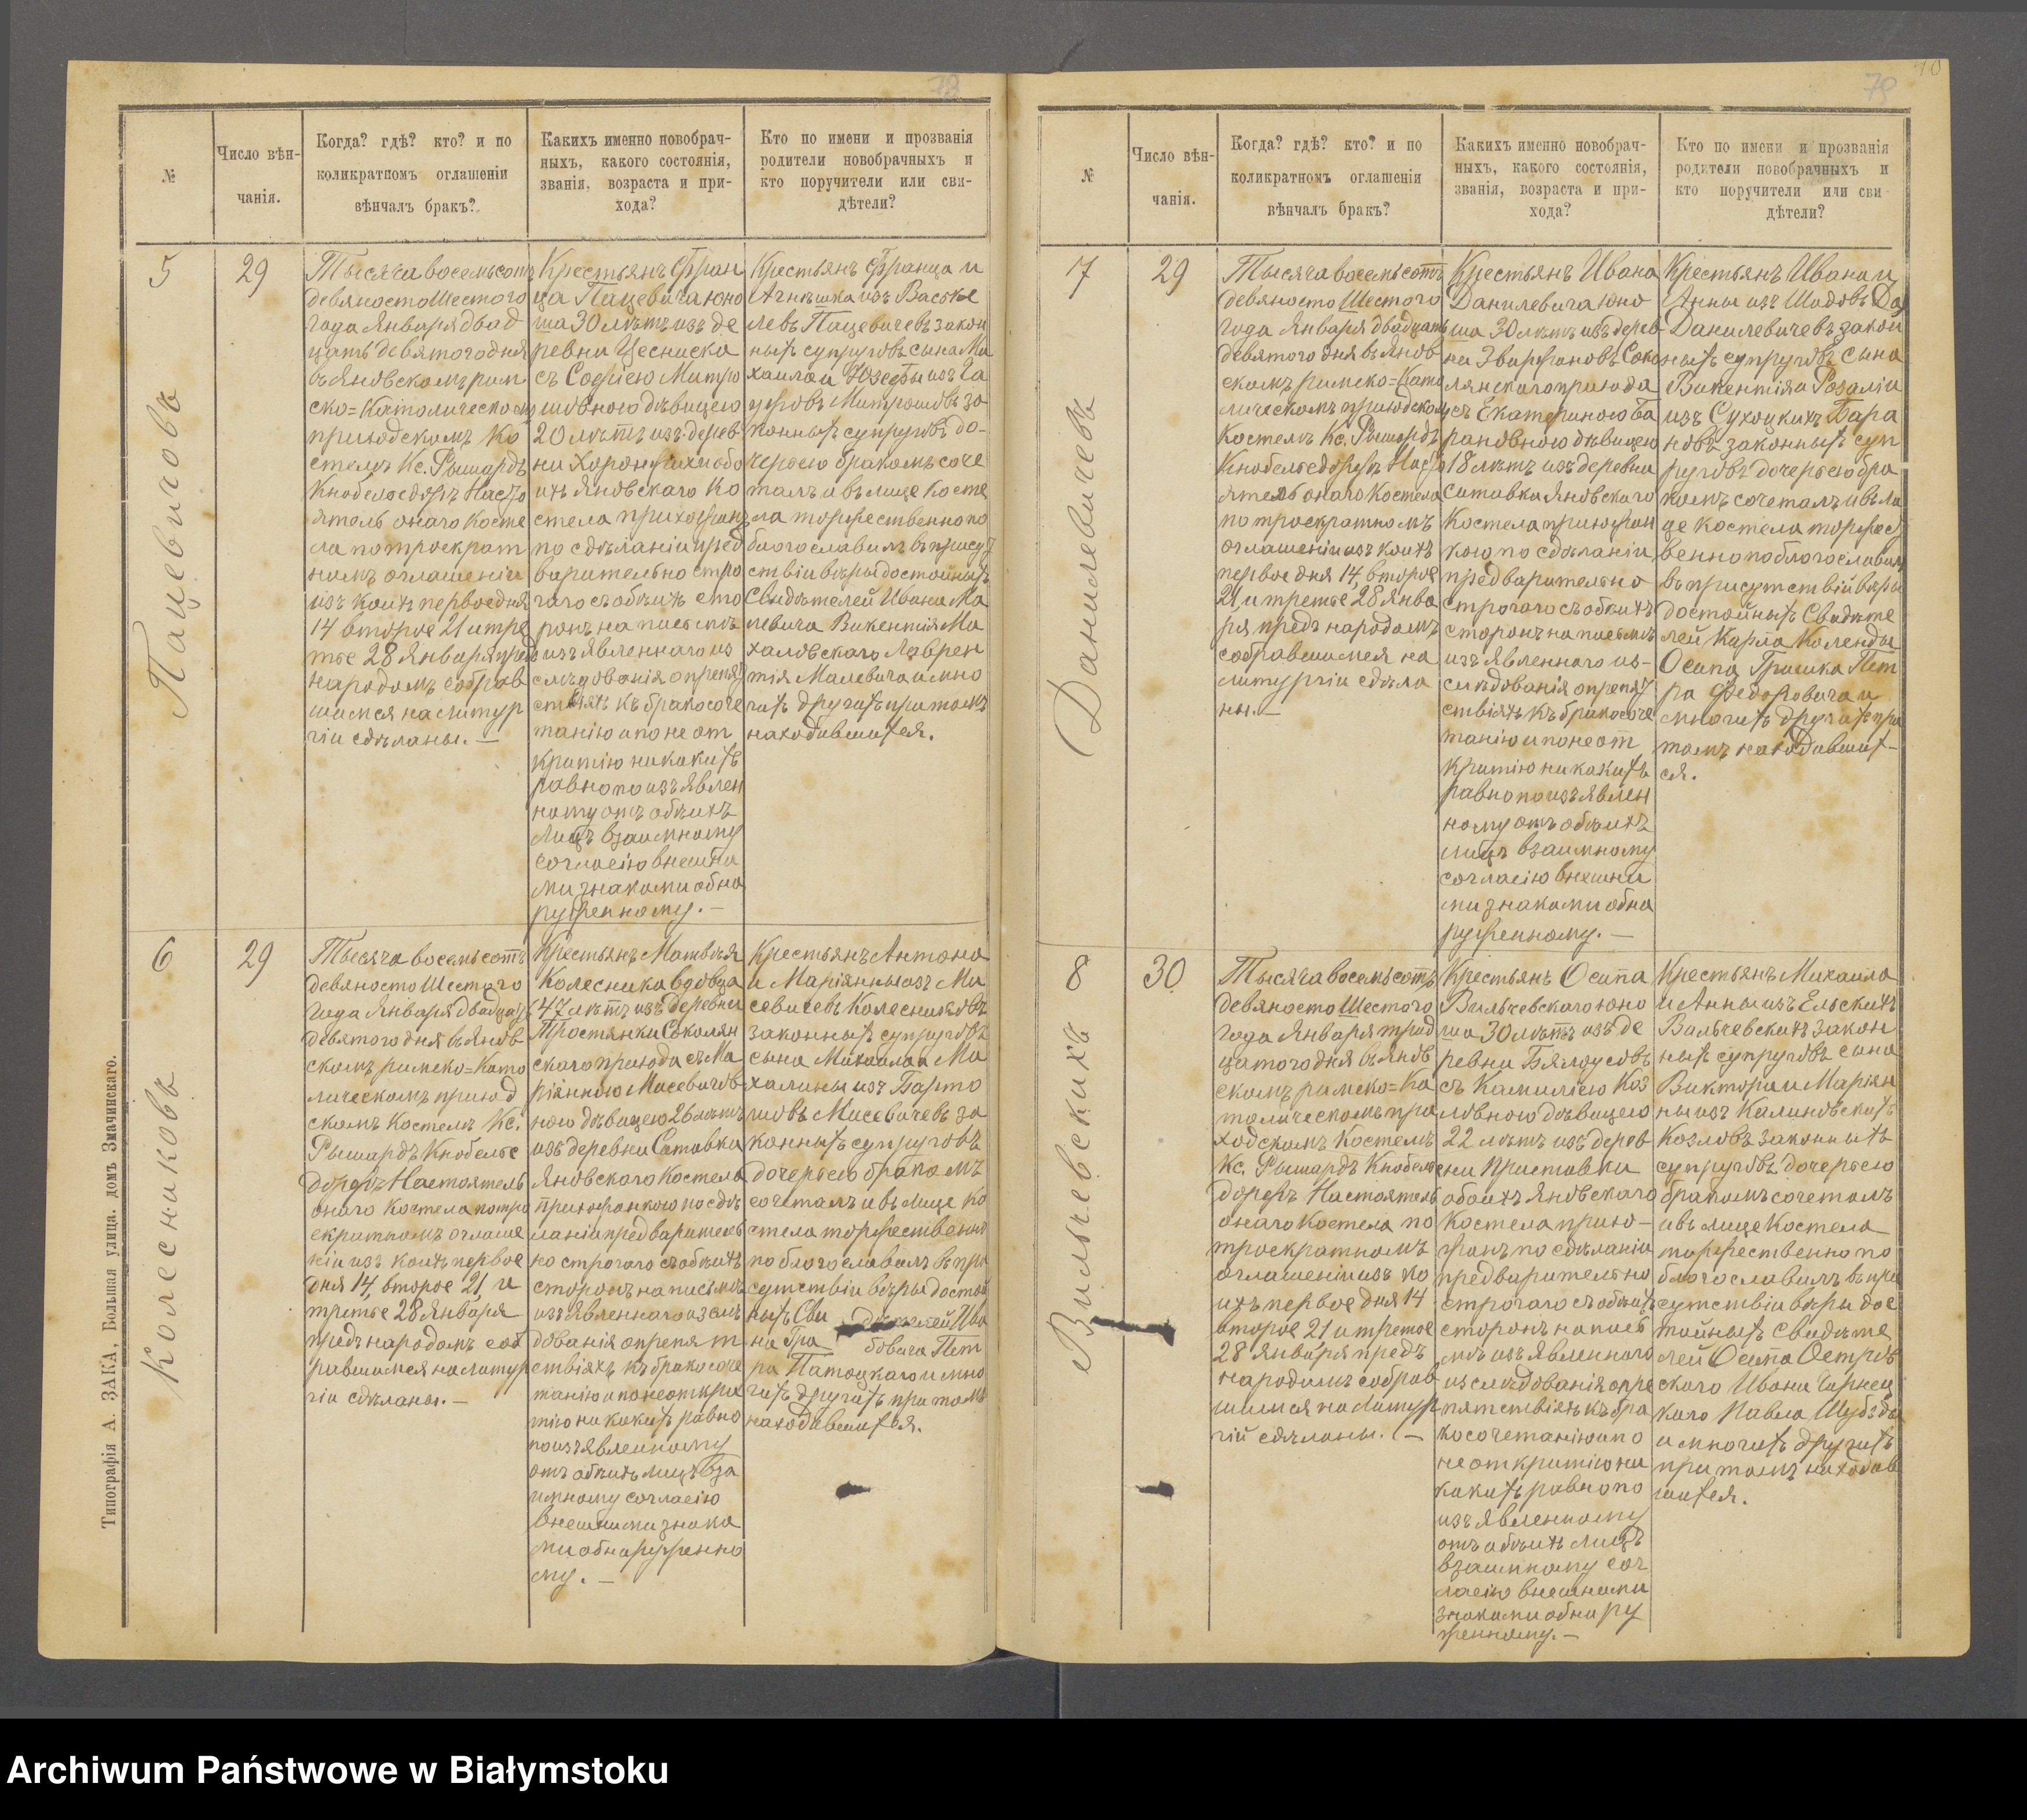 78
№
Число вѣн-
чанія.
Когда? гдѣ? кто? и по
коликратномъ оглашеніи
вѣнчалъ бракъ?
Какихъ именно новобрач-
ныхъ, какого состоянія,
званія, возраста и при-
хода?
Кто по имени и прозванія
родители новобрачныхъ и
кто поручители или сви-
дѣтели?
5
Пацевичовъ
29
Тысяча восемьсотъ
девяносто Шестого
года Января двад
цать девятого дня
въ Яновскомъ рим
ско=Католическомъ
приходскомъ Ко
стелѣ Кс. Рышардъ
Кнобельсдорфъ Насто
ятель онаго Косте
ла по троекрат
номъ оглашеніи
изъ коихъ первое дня
14 второе 21 и тре
тье 28 Января предъ
народомъ собрав
шимся на литур
гіи сдѣланы. —
Крестьянъ Фран
ца Пацевича юно
ша 30 лѣтъ изъ де
ревни Цесниска
съ Софіею Митро
шовною дѣвицею
20 лѣтъ изъ дерев
ни Хоронжихи обо
ихъ Яновскаго Ко
стела прихожанъ
по сдѣланіи пред
варительно стро
гаго съ обѣихъ сто
ронъ на письмѣ
изъявленнаго из
слѣдованія о препят
ствіяхъ къ бракосоче
танію и по не от
крытію никакихъ
равно по изъявлен
ному отъ обѣихъ
лицъ взаимному
согласію внешни
ми знаками обна
руженному. —
Крестьянъ Франца и
Агнѣшки изъ Васоке
левъ Пацевичевъ закон
ныхъ супруговъ сына Ми
хаила и Юзефы изъ Га
цуровъ Митрошовъ за
конныхъ супруговъ до-
черью бракомъ соче
талъ и въ лице Косте
ла торжественно по
благославилъ въ присут
ствіи вѣры достойныхъ
Свидѣтелей Ивана Ма
левича Викентія Ма
халовскаго Лаврен
тія Малевича и мно
гихъ другихъ при томъ
находившихся.
6
Колесниковъ
29
Тысяча восемьсотъ
девяносто Шестого
года Января двадцать
девятого дня въ Янов
скомъ римско=Като
лическомъ приход
скомъ Костелѣ Кс.
Рышардъ Кнобельс
дорфъ Настоятель
онаго Костела по тро
екратномъ оглаше
ніи изъ коихъ первое
дня 14, второе 21, и
третье 28 Января
предъ народомъ соб
равшимся на литур
гіи сдѣланы. —
Крестьянъ Матвѣя
Колесника вдовца
47 лѣтъ изъ деревни
Тростянки Соколян
скаго прихода съ Ма
ріанною Мисевичов
ною дѣвицею 26 лѣтъ
изъ деревни Ситавка
Яновскаго Костела
прихожанкою по сдѣ
ланіи предварительн
но строгаго съ обѣихъ
сторонъ на письмѣ
изъявленнаго изслѣ
дованія о препят
ствіяхъ къ бракосоче
танію и по не откры
тію никакихъ равно
по изъявленному
отъ обѣихъ лицъ вза
имному согласію
внешними знака
ми обнаруженно
му. —
Крестьянъ Антона
и Маріянны изъ Ми
севичевъ Колесниковъ
законныхъ супруговъ
сына Михаила и Ма
халины изъ Барто
шовъ Мисевичевъ за
конныхъ супруговъ
дочерью бракомъ
сочеталъ и въ лице Ко
стела торжественн
поблагославилъ въ при
сутствіи вѣры достой
ныхъ Свидѣтелей Ива
на Гра бовича Пет
ра Патоцкаго и мно
гихъ другихъ при томъ
находившихся.
Типографія А. ЗАКА, Большая улица. домъ Змачинскаго.
79
№
Число вѣн-
чанія.
Когда? гдѣ? кто? и по
коликратномъ оглашеніи
вѣнчалъ бракъ?
Какихъ именно новобрач-
ныхъ, какого состоянія,
званія, возраста и при-
хода?
Кто по имени и прозванія
родители новобрачныхъ и
кто поручители или сви-
дѣтели?
7
Данилевичевъ
29
Тысяча восемьсотъ
девяносто Шестого
года Января двадцать
девятого дня въ Янов
скомъ римско=Като
лическомъ приходскомъ
Костелѣ Кс. Рышардъ
Кнобельсдорфъ Насто
ятель онаго Костела
по троекратномъ
оглашеніи изъ коихъ
первое дня 14, второе
21, и третье 28 Янва
ря предъ народомъ
собравшимся на
литургіи сдѣла
ны. —
Крестьянъ Ивана
Данилевича юно
ша 30 лѣтъ изъ дерев
ни Звержановъ Соко
лянскаго прихода
съ Екатериною Ба
рановною дѣвицею
18 лѣтъ изъ деревни
Ситавка Яновскаго
Костела прихожан
кою по сдѣланіи
предварительно
строгаго съ обѣихъ
сторонъ на письмѣ
изъявленнаго из-
слѣдованія о препят
ствіяхъ къ бракосоче
танію и по не от
крытію никакихъ
равно по изъявлен
ному отъ обѣихъ
лицъ взаимному
согласію внешни
ми знаками обна
руженному. —
Крестьянъ Ивана и
Анны изъ Шидовъ Да
Данилевичевъ закон
ныхъ супруговъ сына
Викентія и Розаліи
изъ Сухоцкихъ Бара
новъ законныхъ суп
руговъ дочерью бра
комъ сочеталъ и въ ли
це Костела торжест
венно поблагославилъ
въ присутствіи вѣры
достойныхъ Свидѣте
лей Карла Коленды
Осипа Гришка Пет
ра Федоровича и
многихъ другихъ при
томъ находивших-
ся.
8
Вильчевскихъ
30
Тысяча восемьсотъ
девяносто Шестого
года Января трид
цатого дня въ Янов
скомъ римско=Ка
толическомъ при
ходскомъ Костелѣ
Кс. Рышардъ Кнобельс
дорфъ Настоятель
онаго Костела по
троекратномъ
оглашеніи изъ ко
ихъ первое дня 14
второе 21 и третье
28 Января предъ
народомъ собрав
шимся на Литур
гіи сдѣланы. —
Крестьянъ Осипа
Вильчевскаго юно
ша 30 лѣтъ изъ де
ревни Бялоусовъ
съ Камиліею Коз
ловною дѣвицею
22 лѣтъ изъ дерев
ни Приставки
обоихъ Яновскаго
Костела прихо-
жанъ по сдѣланіи
предварительно
строгаго съ обѣихъ
сторонъ на пись
мѣ изъявленнаго
изслѣдованія о пре
пятствіяхъ къ бра
косочетанію и по
не открытію ни
какихъ равно по
изъявленному
отъ обѣихъ лицъ
взаимному сог
ласію внешними
знаками обнару
женному. —
Крестьянъ Михаила
и Анны изъ Ельскихъ
Вильчевскихъ закон
ныхъ супруговъ сына
Виктора и Маріян
ны изъ Калиновскихъ
Козловъ законныхъ
супруговъ дочерью
бракомъ сочеталъ
и въ лице Костела
торжественно по
благославилъ въ при
сутствіи вѣры дос
тойныхъ Свидѣте
лей Осипа Остров
скаго Ивана Чарнец
каго Павла Шубзды
и многихъ другихъ
при томъ находив
шихся.
Archiwum Państwowe w Białymstoku